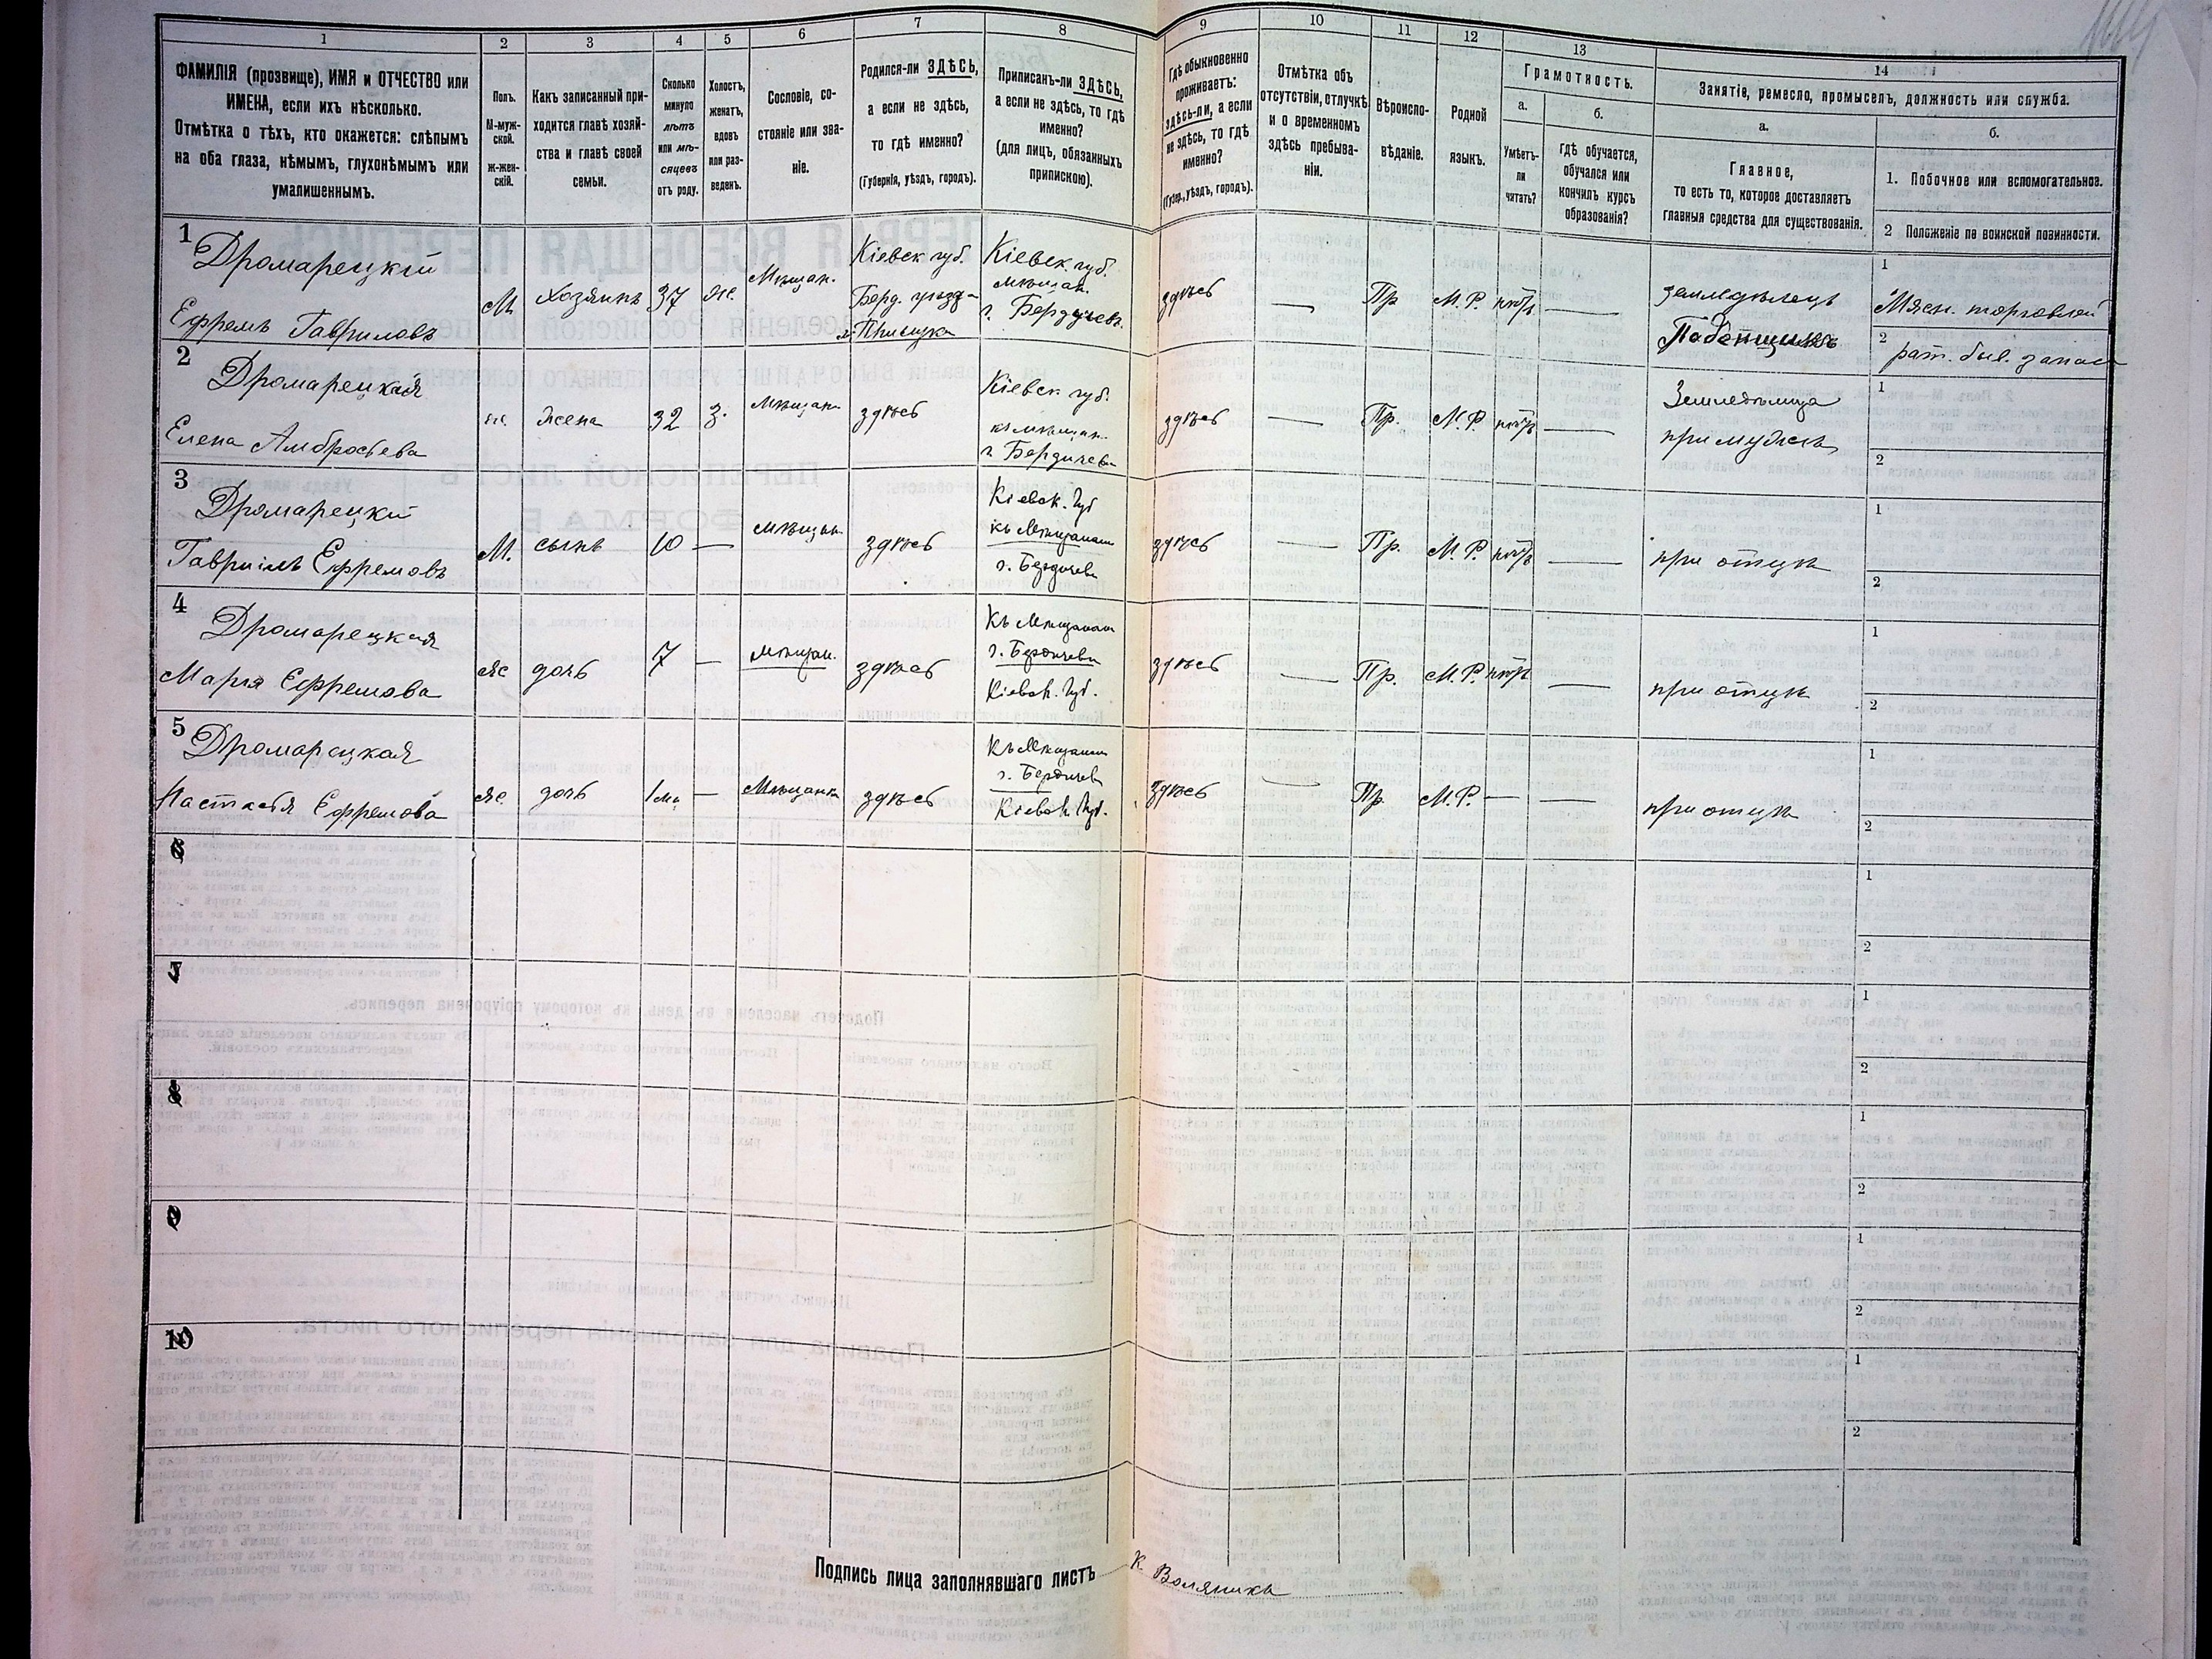 1 2 3 4 5 6 7 8 9 10 11 12 13 14
ФАМИЛІЯ (прозвище), ИМЯ и ОТЧЕСТВО или
ИМЕНА, если ихъ нѣсколько.
Отмѣтка о тѣхъ, кто окажется: слѣпымъ
на оба глаза, нѣмымъ, глухонѣмымъ или
умалишеннымъ.
Полъ.
М-муж-
ской.
ж-жен-
скій.
Какъ записанный при-
ходится главѣ хозяй-
ства и главѣ своей
семьи.
Сколько
минуло
лѣтъ
или мѣ-
сяцевъ
отъ роду.
Холостъ,
женатъ,
вдовъ
или раз-
веденъ.
Сословіе, со-
стояніе или зва-
ніе.
Родился-ли ЗДѢСЬ,
а если не здѣсь,
то гдѣ именно?
(Губернія, уѣздъ, городъ).
Приписанъ-ли ЗДѢСЬ,
а если не здѣсь, то гдѣ
именно?
(для лицъ, обязанныхъ
припискою).
Гдѣ обыкновенно
проживаетъ:
здѣсь-ли, а если
не здѣсь, то гдѣ
именно?
(Губер., уѣздъ, городъ).
Отмѣтка объ
отсутствіи, отлучкѣ
и о временномъ
здѣсь пребыва-
ніи.
Вѣроиспо-
вѣданіе.
Родной
языкъ.
Грамотность.
а.
Умѣетъ-
ли
читать?
б.
Гдѣ обучается,
обучался или
кончилъ курсъ
образованія?
Занятіе, ремесло, промыселъ, должность или служба.
а.
Главное,
то есть то, которое доставляетъ
главныя средства для существованія.
б.
1. Побочное или вспомогательное.
2 Положеніе по воинской повинности.
1
Дромарецкій
Ефремъ Гавриловъ
М
Хозяинъ
37
же.
Мѣщан.
Кіевск губ.
Берд. уѣзд
Кіевск. губ.
мѣщан.
г. Бердичев.
здѣсь
—
Пр
М. Р.
—
земледѣлецъ
1
Мясн. торговлей
2
рат. был. запас
2
Дромарецкая
Елена Амбросьева
же.
жена
32
З.
Мѣщан
здѣсь
Кіевск губ.
къ мѣщан.
г. Бердичева
здѣсь
—
Пр.
М. Р.
—
Земледѣлица
при мужѣ
1
2
3
Дромарецкій
Гавриілъ Ефремовъ
М.
сынъ
10
—
мѣщан.
здѣсь
Кіевск. Губ
къ Мѣщанам
г. Бердичева
здѣсь
—
Пр.
М. Р.
—
при отцѣ
1
2
4
Дромарецкая
Марія Ефремова
же
дочь
7
—
мѣщан.
здѣсь
Къ Мѣщанам
г. Бердичева
Кіевск. Губ.
здѣсь
—
Пр.
М. Р.
—
при отцѣ
1
2
5
Дромарецкая
Настасья Ефремова
же
дочь
—
Мѣщанка
здѣсь
Къ Мѣщанам
г. Бердичев
Кіевск. Губ.
здѣсь
—
Пр.
М. Р.
—
—
при отцѣ
1
2
6
1
2
7
1
2
8
1
2
9
1
2
10
1
2
Подпись лица заполнявшаго листъ